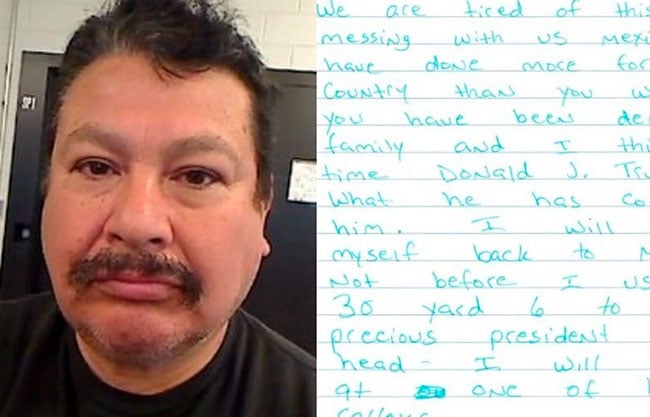 SP1
We are tired of this
messing with us Mexi
have done more for
Country than you w
you have been de
family and I thi
time Donald J. Tru
What he has co
him. I will
myself back to M
Not before I us
30 yard 6 to
precious president
head - I will
at one of h